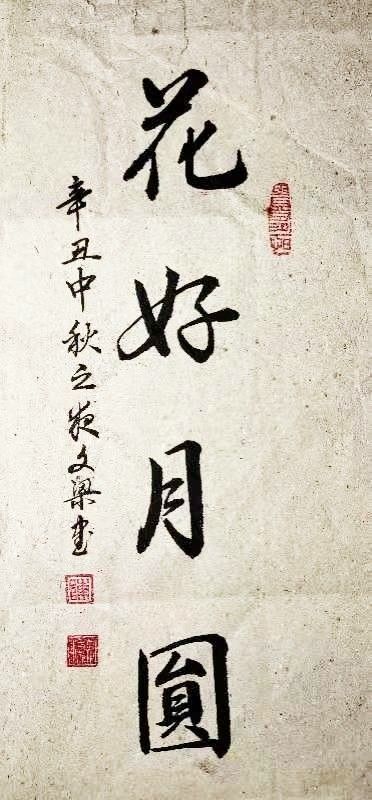 花好月圓
辛丑中秋之夜文梁书